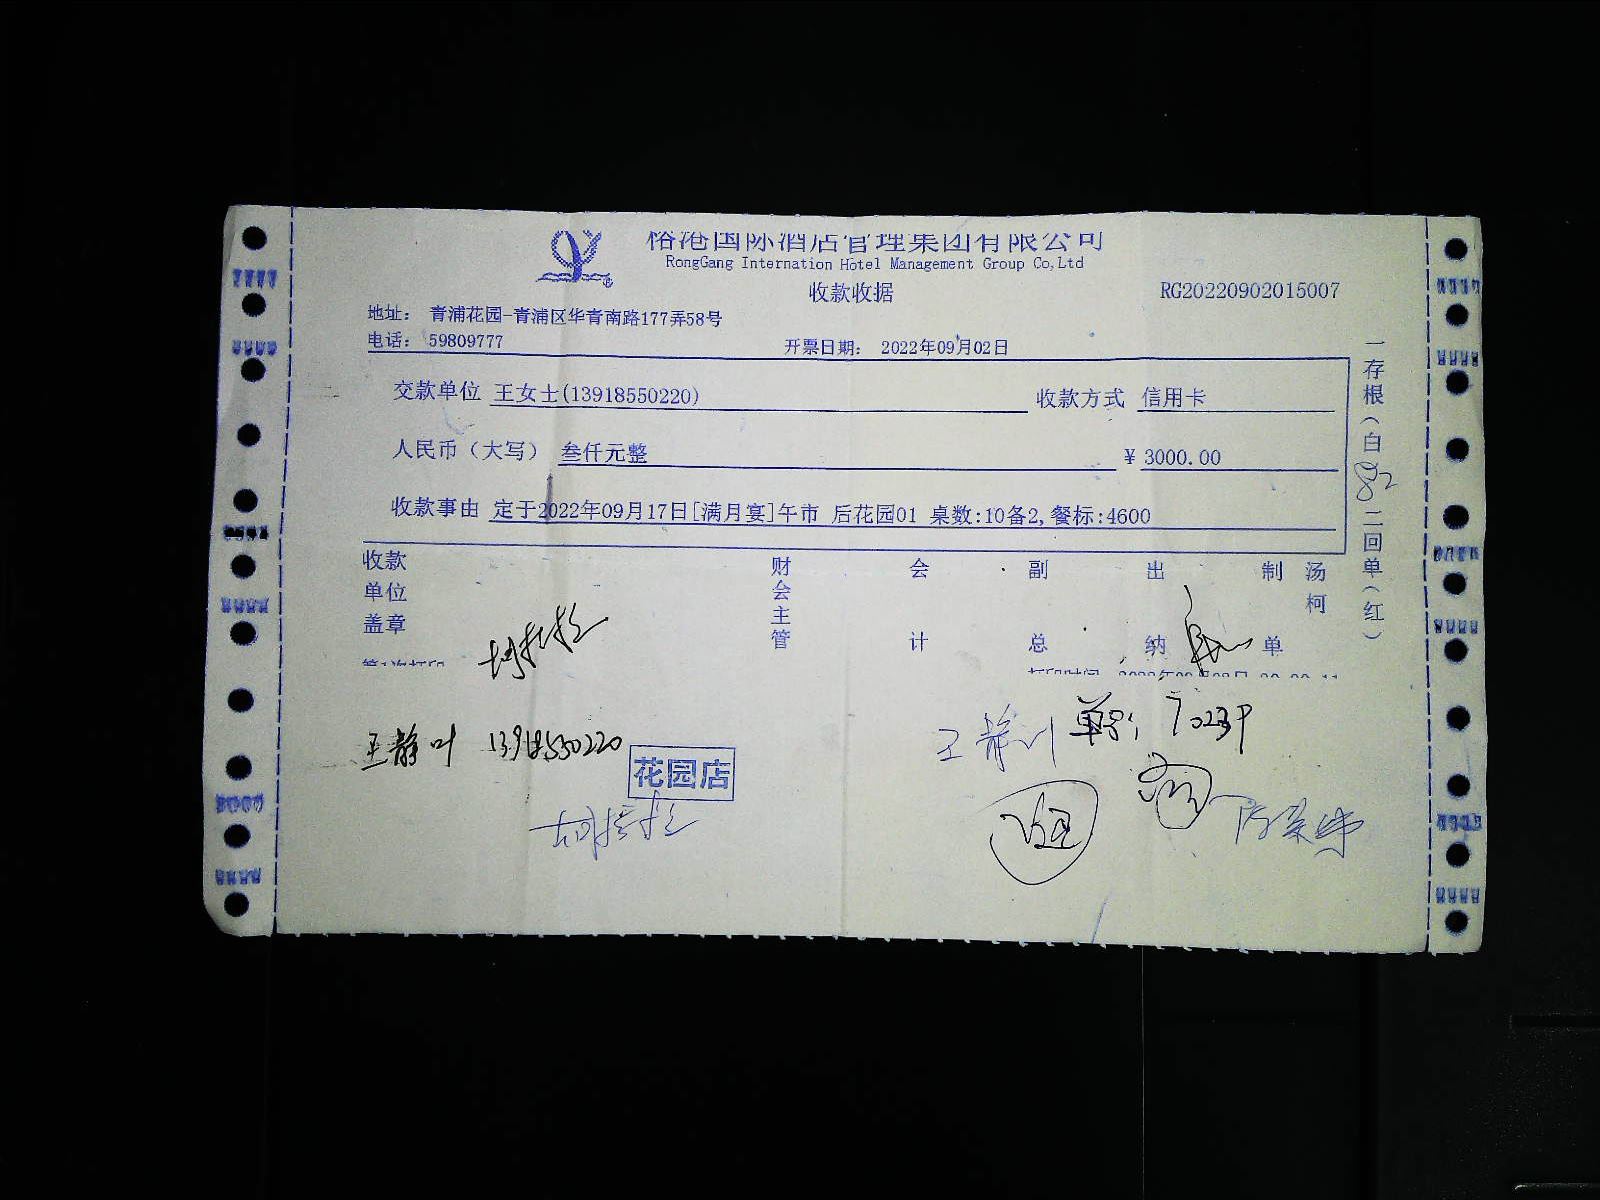 榕港国际酒店管理集团有限公司
RongGang Internation Hotel Management Group Co,Ltd
收款收据
RG20220902015007
地址： 青浦花园-青浦区华青南路177弄58号
电话： 59809777
开票日期： 2022年09月02日
交款单位 王女士(13918550220) 收款方式 信用卡
人民币（大写） 叁仟元整 ¥ 3000.00
收款事由 定于2022年09月17日[满月宴]午市 后花园01 桌数:10备2,餐标:4600
收款单位盖章 财会主管 会计 副总 出纳 制单 汤柯
一存根（白） 二回单（红）
王静叶 13918550220
花园店